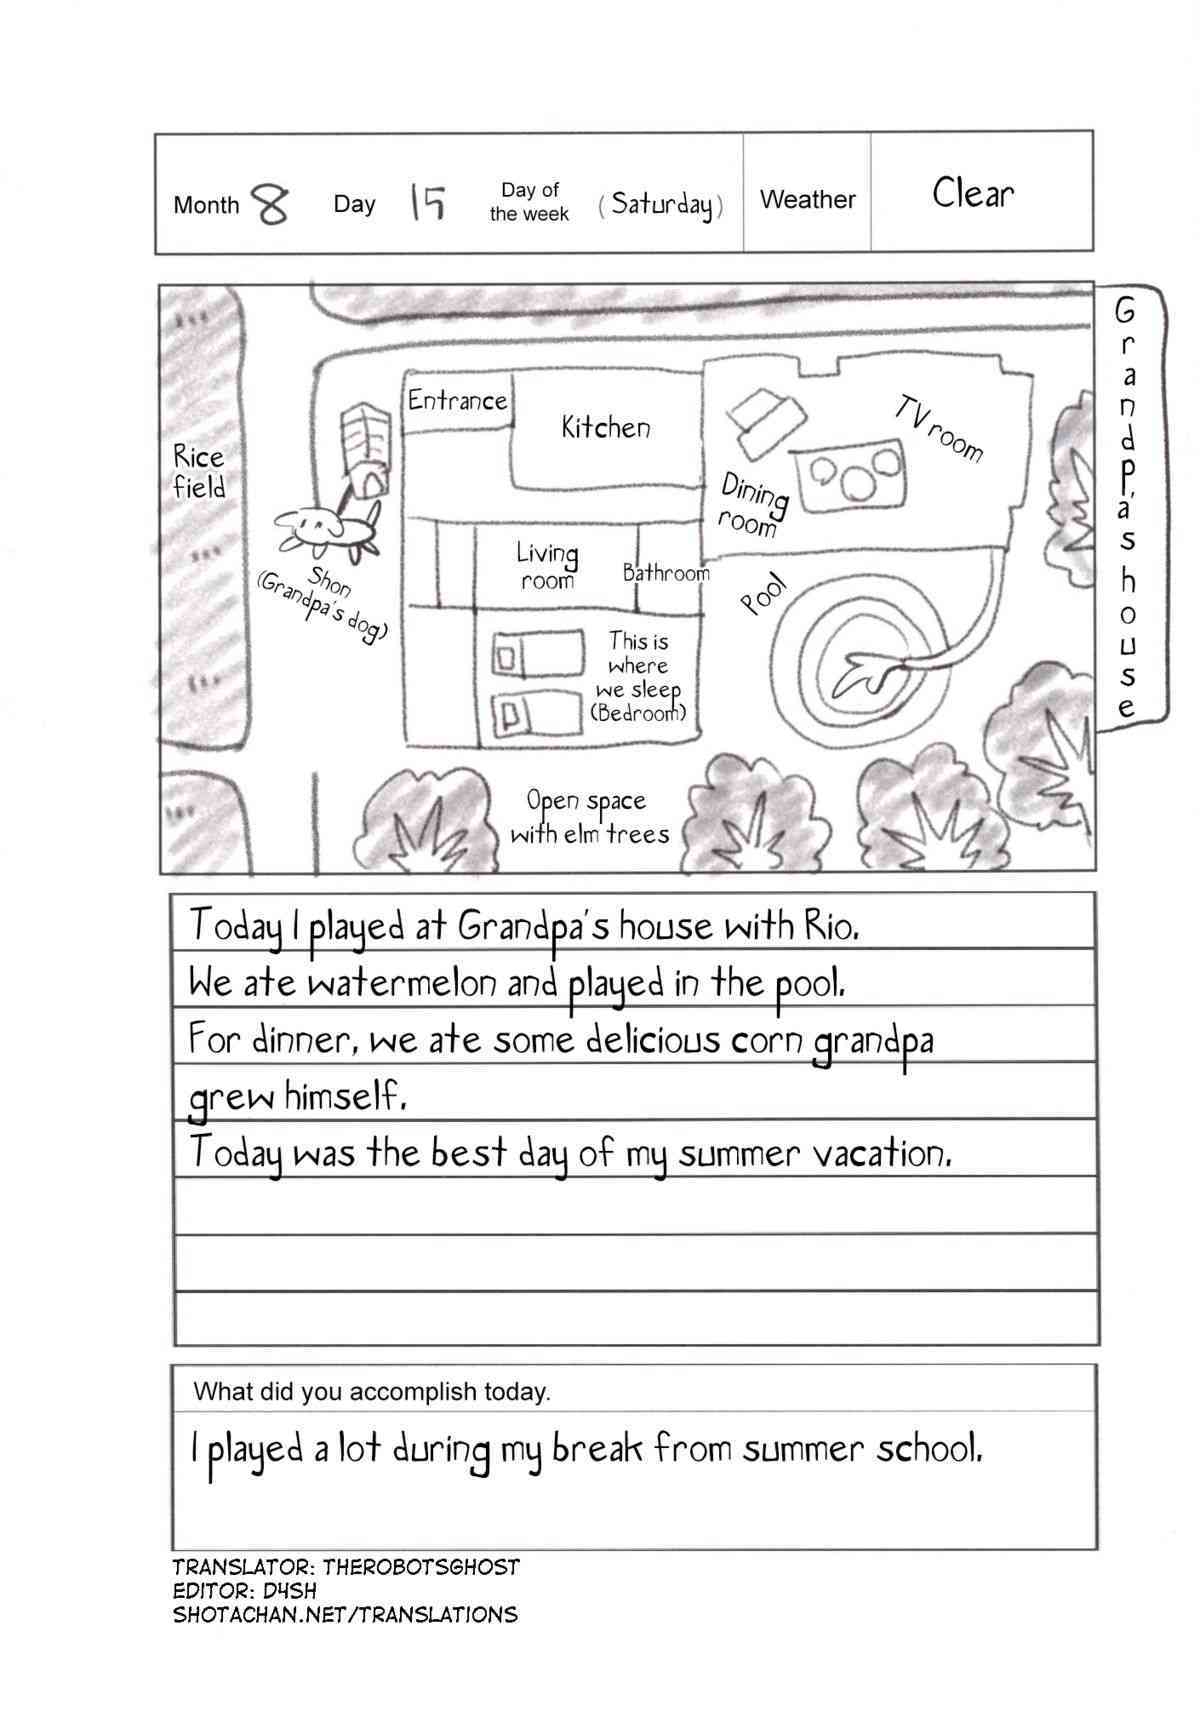 Month 8 Day 15 Day of the week (Saturday) Weather Clear
Grandpa's house
Entrance
Kitchen
TV room
Rice
field
Dining
room
Living
room
Bathroom
Shon
(Grandpa's dog)
Pool
This is
where
we sleep
(Bedroom)
Open space
with elm trees
Today I played at Grandpa's house with Rio.
We ate watermelon and played in the pool.
For dinner, we ate some delicious corn grandpa
grew himself.
Today was the best day of my summer vacation.
What did you accomplish today.
I played a lot during my break from summer school.
TRANSLATOR: THEROBOTSGHOST
EDITOR: D4SH
SHOTACHAN.NET/TRANSLATIONS